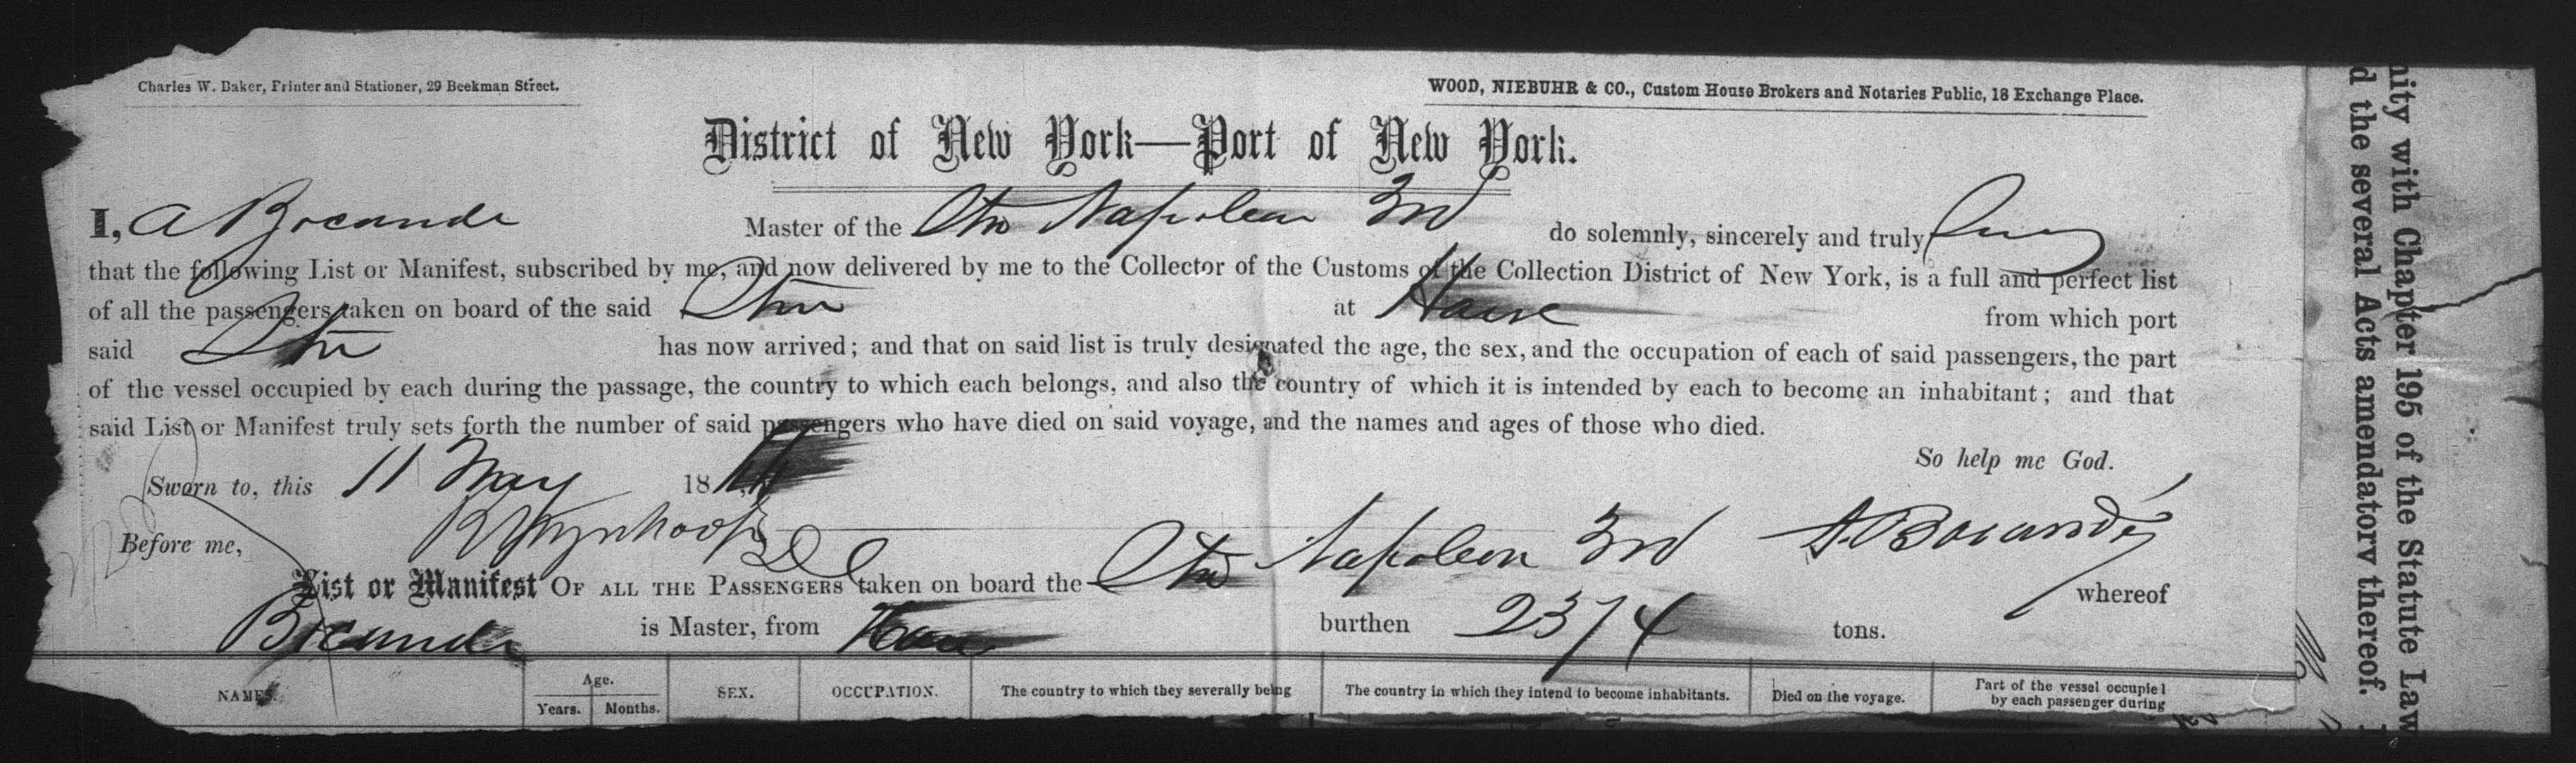 Charles W. Baker, Printer and Stationer, 29 Beekman Street.
WOOD, NIEBUHR & CO., Custom House Brokers and Notaries Public, 18 Exchange Place.
District of New York—Port of New York.
I, A Bocande Master of the Str Napoleon 3rd do solemnly, sincerely and truly
that the following List or Manifest, subscribed by me, and now delivered by me to the Collector of the Customs of the Collection District of New York, is a full and perfect list
of all the passengers taken on board of the said Str at Havre from which port
said Str has now arrived; and that on said list is truly designated the age, the sex, and the occupation of each of said passengers, the part
of the vessel occupied by each during the passage, the country to which each belongs, and also the country of which it is intended by each to become an inhabitant; and that
said List or Manifest truly sets forth the number of said passengers who have died on said voyage, and the names and ages of those who died.
So help me God.
Sworn to, this 11 May 18
Before me, Wynkoop
A. Bocandé
List or Manifest OF ALL THE PASSENGERS taken on board the Str Napoleon 3rd whereof
Bocande is Master, from Havre burthen 2374 tons.
NAMES. Age. Years. Months. SEX. OCCUPATION. The country to which they severally being The country in which they intend to become inhabitants. Died on the voyage. Part of the vessel occupiel by each passenger during
nity with Chapter 195 of the Statute Law
d the several Acts amendatory thereof.